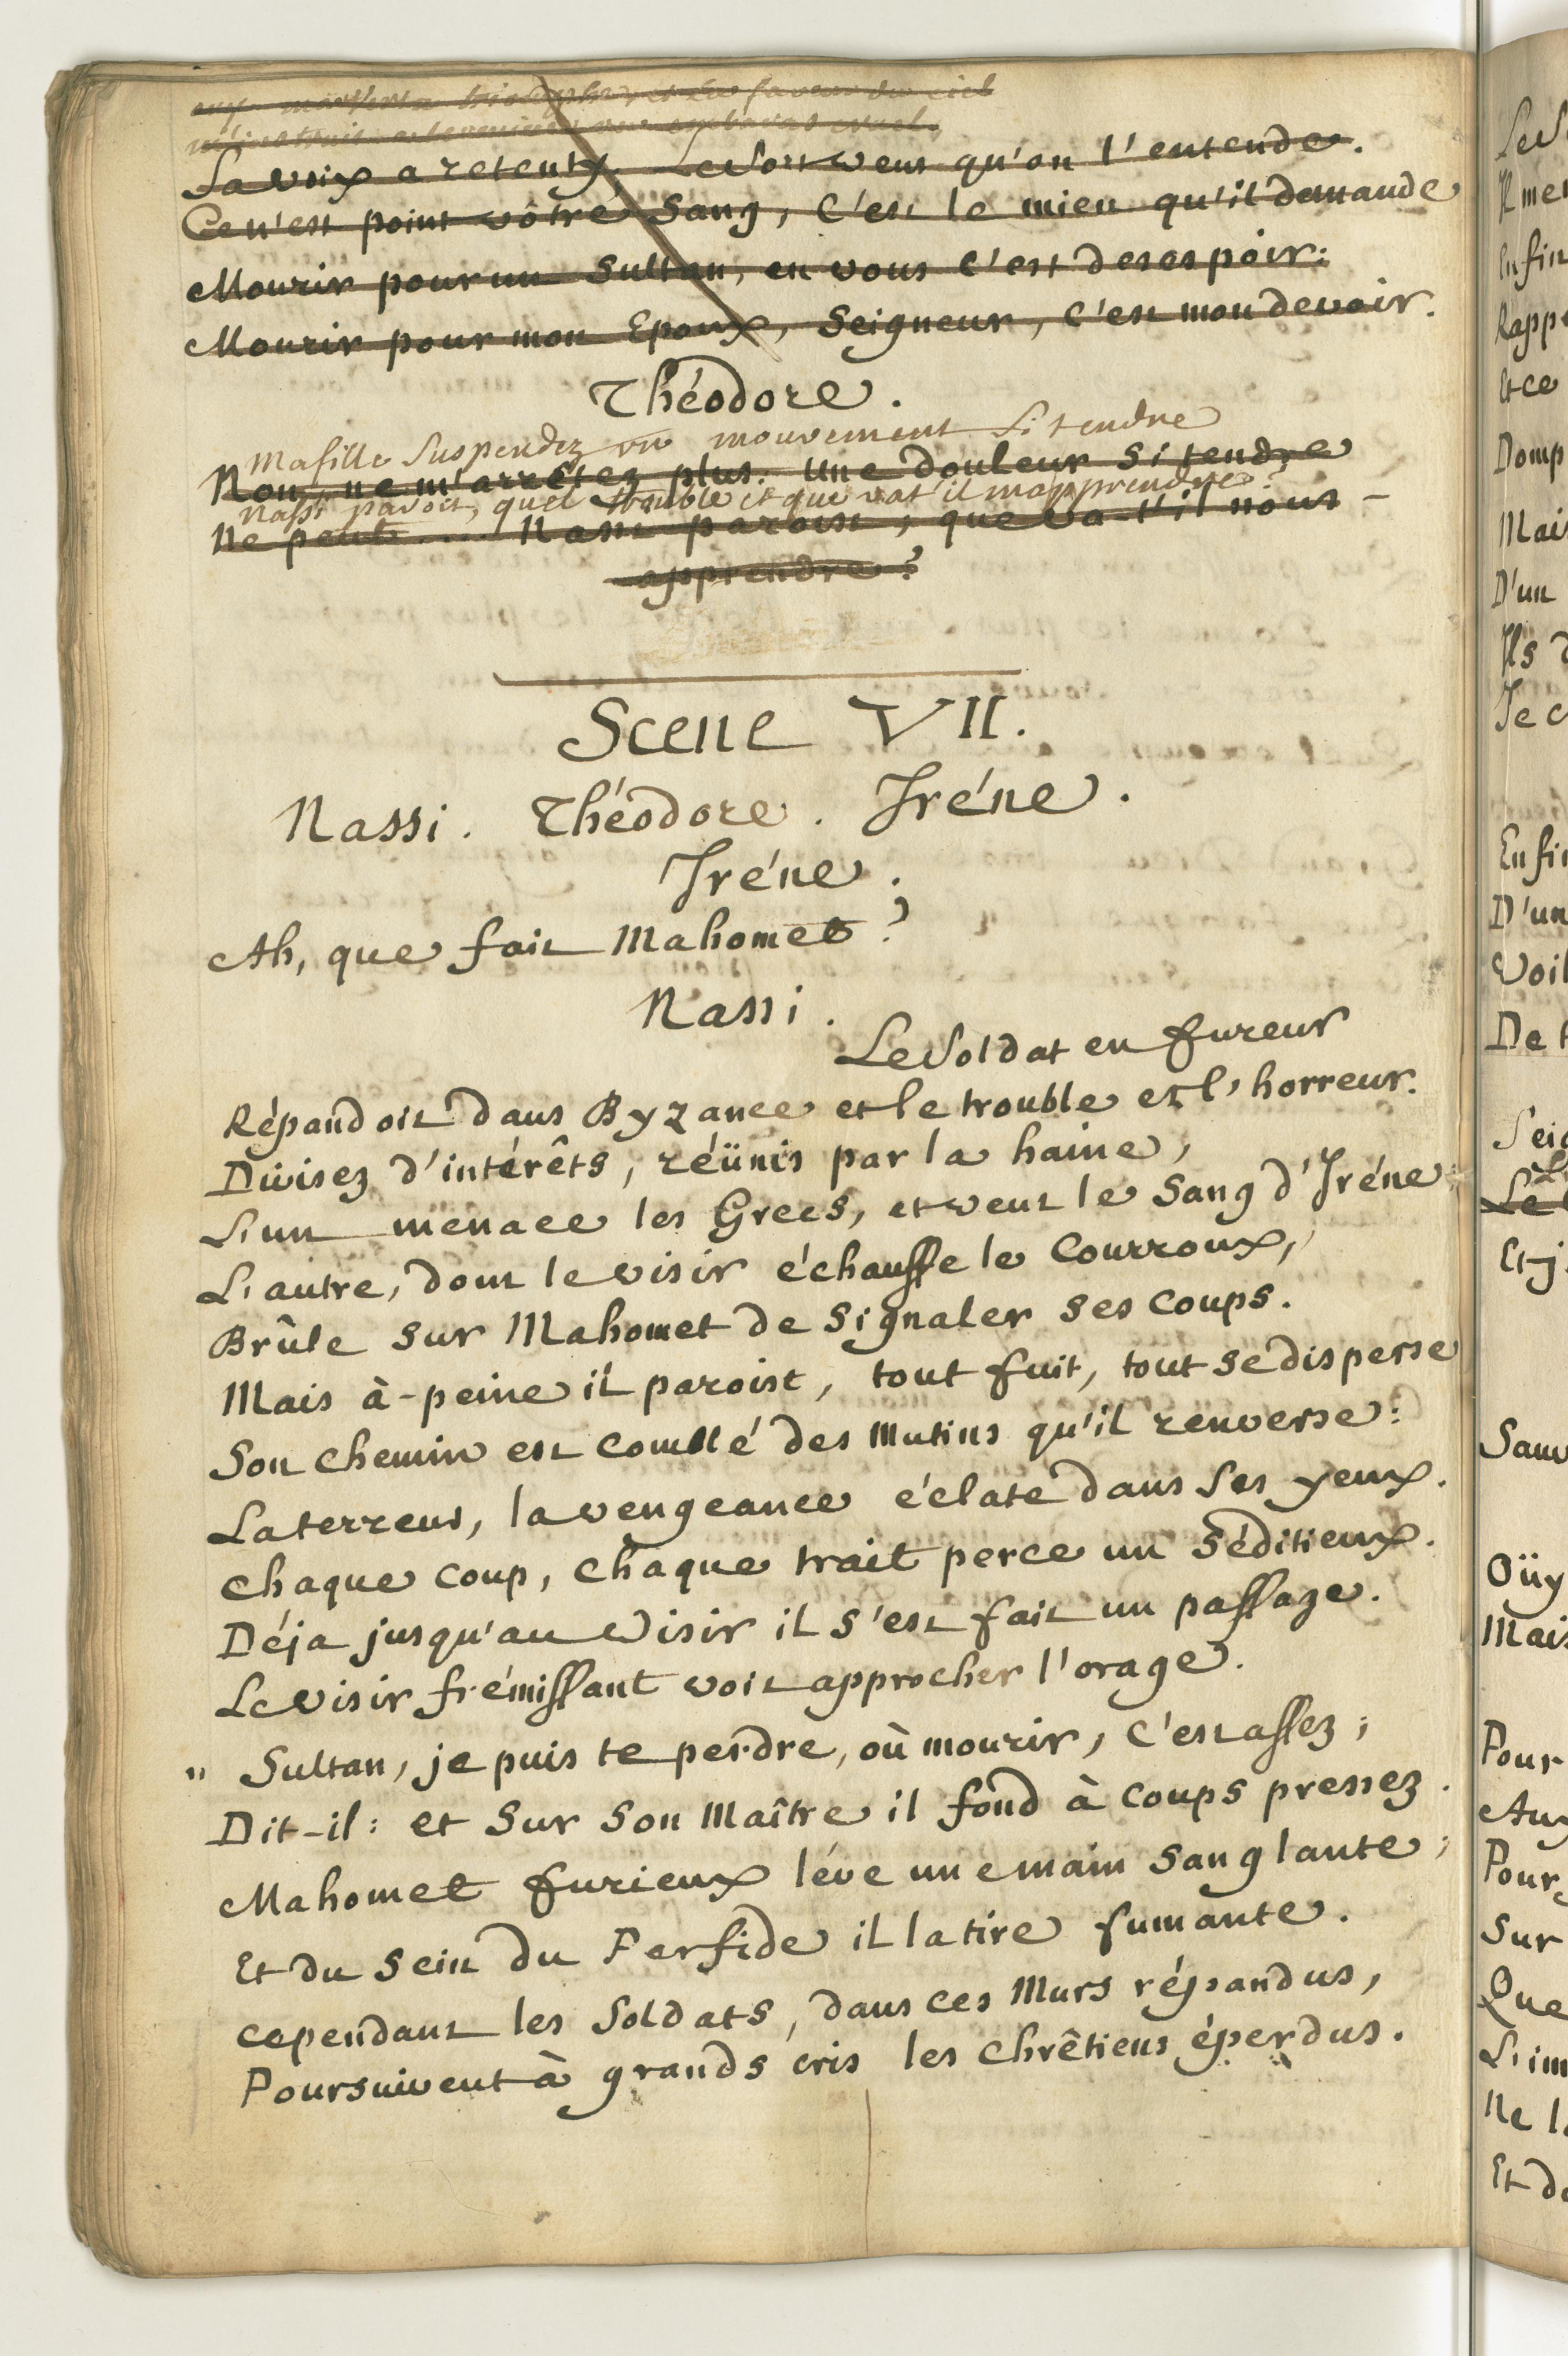 La voix a retenty. Le Sort veut qu'on l'entende.
Ce n'est point vôtre Sang, C'est le mien qu'il demande
Mourir pour un Sultan, en vous c'est desespoir:
Mourir pour mon Epoux, Seigneur, c'est mon devoir.
Théodore.
Ma fille Suspendez un mouvement Si tendre
Non, ne m'arrêtez plus. Une douleur si tendre
Nassi paroit, quel trouble et que vat'il m'apprendre?
Ne peut .... Nassi paroist, que va-t'il nous -
apprendre?
Scene VII.
Nassi. Théodore. Iréne.
Iréne.
Ah, que fait Mahomet?
Nassi.
Le Soldat en fureur
Répandoit dans Byzance et le trouble et l'horreur.
Divisez d'intérêts, réünis par la haine,
L'un menace les Grecs, et veut le Sang d'Iréne:
L'autre, dont le visir échauffe le Courroux,
Brûle sur Mahomet de signaler ses coups.
Mais à-peine il paroist, tout fuit, tout se disperse
Son chemin est comblé des Mutins qu'il renverse:
La terreur, la vengeance éclate dans Ses yeux.
Chaque coup, chaque trait perce un séditieux.
Déja jusqu'au Visir il s'est fait un passage.
Le Visir frémissant voit approcher l'orage.
" Sultan, je puis te perdre, où mourir, c'est assez;
Dit-il: et sur son Maître il fond à coups pressez.
Mahomet furieux léve une main sanglante;
Et du sein du Perfide il la tire fumante.
cependant les Soldats, dans ces Murs répandus,
Poursuivent à grands cris les chrêtiens éperdus.